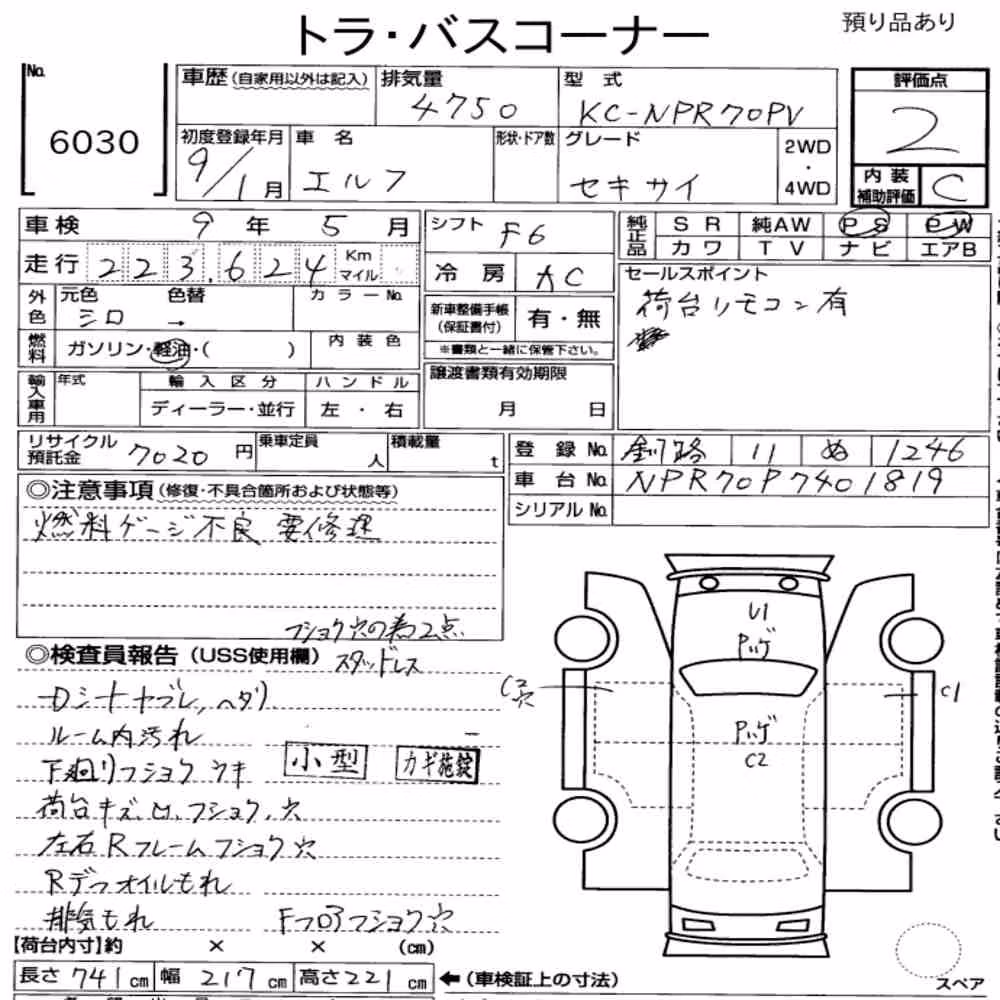 トラ・バスコーナー 預り品あり
No. 6030
車歴(自家用以外は記入) 排気量 4750 型式 KC-NPR70PV
初度登録年月 9/1月 車名 エルフ 形状・ドア数 グレード セキサイ 2WD・4WD
評価点 2
内装補助評価 C
車検 9年 5月
走行 223,624 Km マイル
外色 元色 シロ 色替 → カラーNo.
燃料 ガソリン・軽油・( ) 内装色
輸入車用 年式 輸入区分 ディーラー・並行 ハンドル 左・右
シフト F6
冷房 AC
新車整備手帳(保証書付) 有・無
※書類と一緒に保管下さい。
譲渡書類有効期限 月 日
純正品 SR 純AW PS PW
カワ TV ナビ エアB
セールスポイント
荷台リモコン有
リサイクル預託金 7020円 乗車定員 人 積載量 t
登録No. 釧路 11 ぬ 1246
車台No. NPR70P7401819
シリアルNo.
◎注意事項(修復・不具合箇所および状態等)
燃料ゲージ不良 要修理
フショク穴の為2点
◎検査員報告(USS使用欄) スタッドレス
Dシートヤブレ,ヘタリ
ルーム内汚れ
下廻りフショク ウキ 小型 カギ施錠
荷台キズ,凹,フショク,穴
左右Rフレームフショク穴
Rデフオイルもれ
排気もれ Fフロアフショク穴
U1
Pハゲ
C2
穴
C1
Pハゲ
C2
【荷台内寸】約 × × (cm)
長さ 741cm 幅 217cm 高さ 221cm ←(車検証上の寸法)
スペア